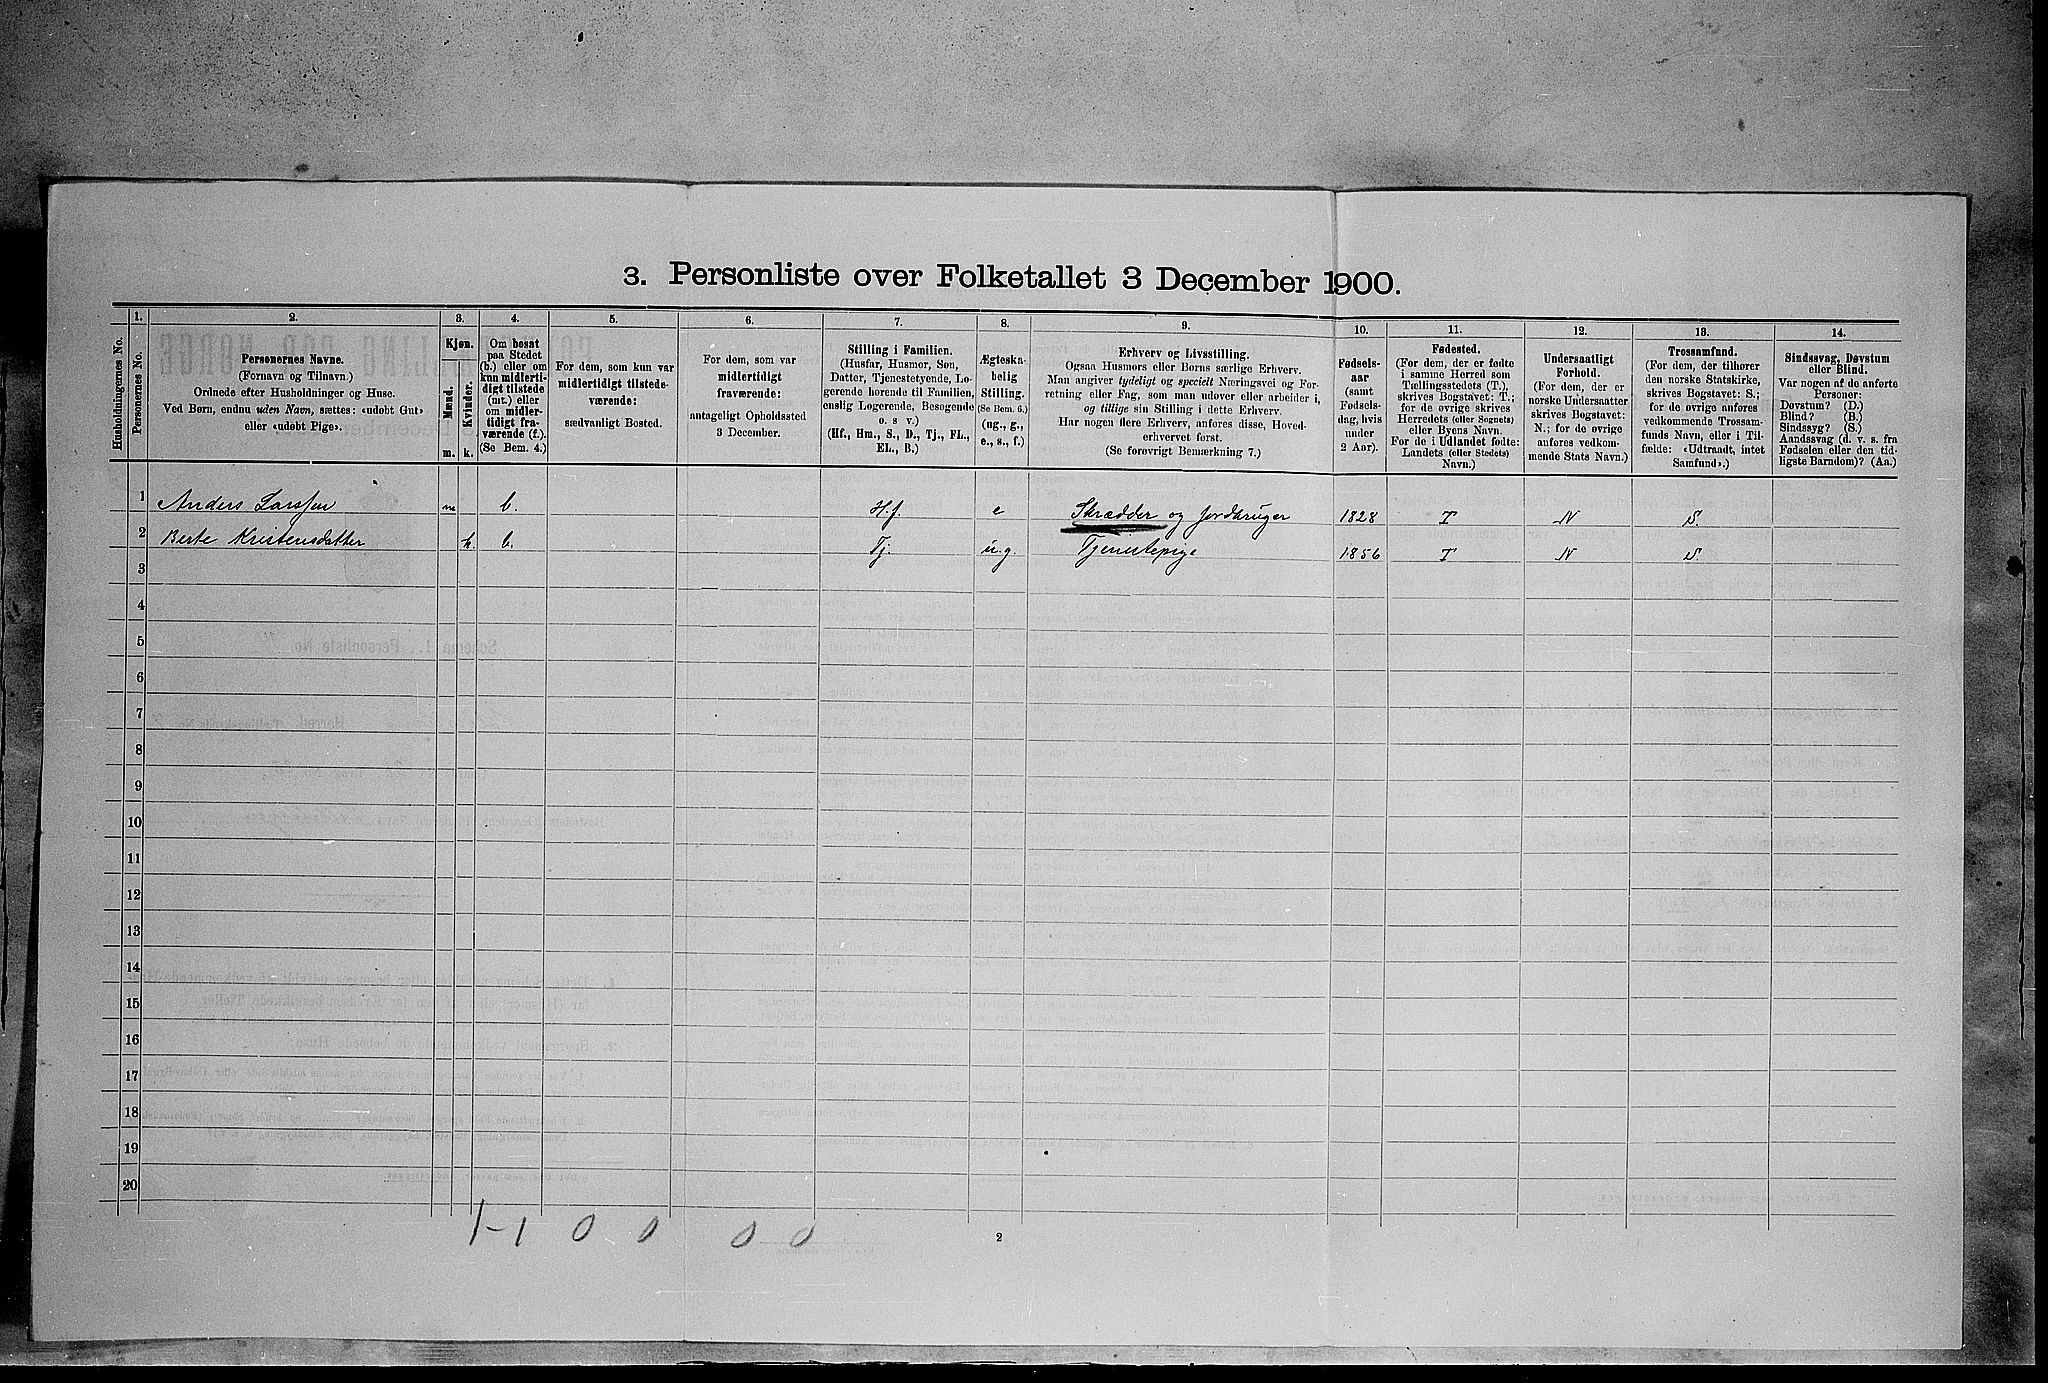 3. Personliste over Folketallet 3 December 1900.
Husholdningernes No.
1.
Personernes No.
2.
Personernes Navne.
(Fornavn og Tilnavn.)
Ordnede efter Husholdninger og Huse.
Ved Børn, endnu uden Navn, sættes: «udøbt Gut»
eller «udøbt Pige».
3.
Kjøn.
Mænd.
Kvinder.
m. k.
4.
Om bosat
paa Stedet
(b.) eller om
kun midlerti-
digt tilstede
(mt.) eller
om midler-
tidigt fra-
værende (f.).
(Se Bem. 4.)
5.
For dem, som kun var
midlertidigt tilstede-
værende:
sædvanligt Bosted.
6.
For dem, som var
midlertidigt
fraværende:
antageligt Opholdssted
3 December.
7.
Stilling i Familien.
(Husfar, Husmor, Søn,
Datter, Tjenestetyende, Lo-
gerende hørende til Familien,
enslig Logerende, Besøgende
o. s v.)
(Hf., Hm., S., D., Tj., FL.,
EL., B.)
8.
Ægteska-
belig
Stilling.
(Se Bem. 6.)
(ug., g.,
e., s., f.)
9.
Erhverv og Livsstilling.
Ogsaa Husmors eller Børns særlige Erhverv.
Man angiver tydeligt og specielt Næringsvei og For-
retning eller Fag, som man udøver eller arbeider i,
og tillige sin Stilling i dette Erhverv.
Har nogen flere Erhverv, anføres disse, Hoved-
erhvervet først.
(Se forøvrigt Bemærkning 7.)
10.
Fødsels-
aar
(samt
Fødsels-
dag, hvis
under
2 Aar).
11.
Fødested.
(For dem, der er fødte
i samme Herred som
Tællingsstedets (T.),
skrives Bogstavet: T.;
for de øvrige skrives
Herredets (eller Sognets)
eller Byens Navn.
For de i Udlandet fødte:
Landets (eller Stedets)
Navn.)
12.
Undersaatligt
Forhold.
(For dem, der er
norske Undersaatter
skrives Bogstavet:
N.; for de øvrige
anføres vedkom-
mende Stats Navn.)
13.
Trossamfund.
(For dem, der tilhører
den norske Statskirke,
skrives Bogstavet: S.;
for de øvrige anføres
vedkommende Trossam-
funds Navn, eller i Til-
fælde: «Udtraadt, intet
Samfund».)
14.
Sindssvag, Døvstum
eller Blind.
Var nogen af de anførte
Personer:
Døvstum? (D.)
Blind? (B.)
Sindssyg? (S.)
Aandssvag (d. v. s. fra
Fødselen eller den tid-
ligste Barndom)? (Aa.)
1 Anders Larssen m b. H.f. e Skrædder og Jordbruger 1828 T N S.
2 Berte Kristensdatter k. b. Tj. u.g. Tjenestepige 1856 T N S.
3
4
5
6
7
8
9
10
11
12
13
14
15
16
17
18
19
20
1-1 0 0 0 0
2